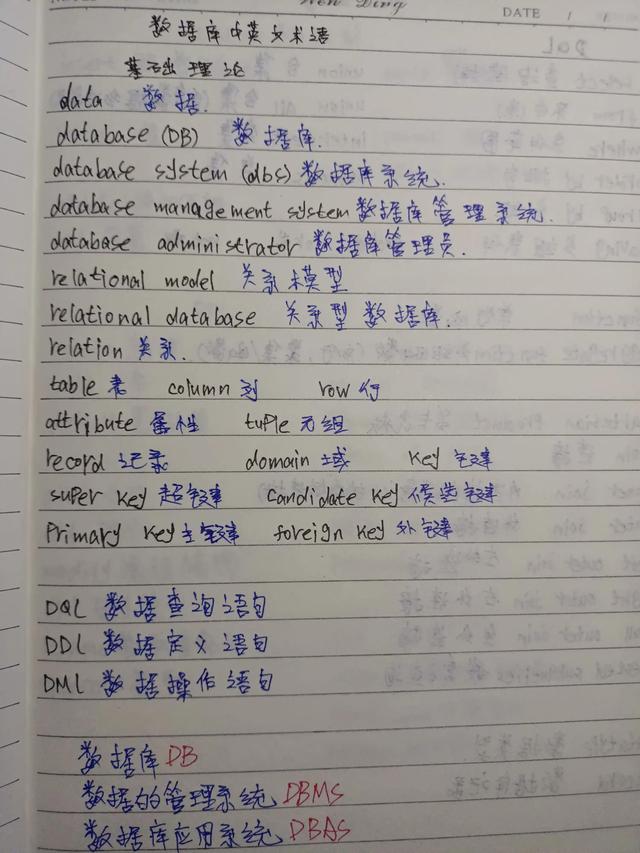 DATE / /
数据库中英文术语
基础理论
data 数据.
database (DB) 数据库.
database system (dbs) 数据库系统.
database management system 数据库管理系统.
database administrator 数据库管理员.
relational model 关系模型
relational database 关系型数据库.
relation 关系.
table 表 column 列 row 行
attribute 属性 tuple 元组
record 记录 domain 域 key 键
super key 超键 candidate key 候选键
Primary key 主键 foreign key 外键
DQL 数据查询语句
DDL 数据定义语句
DML 数据操作语句
数据库 DB
数据的管理系统 DBMS
数据库应用系统 DBAS